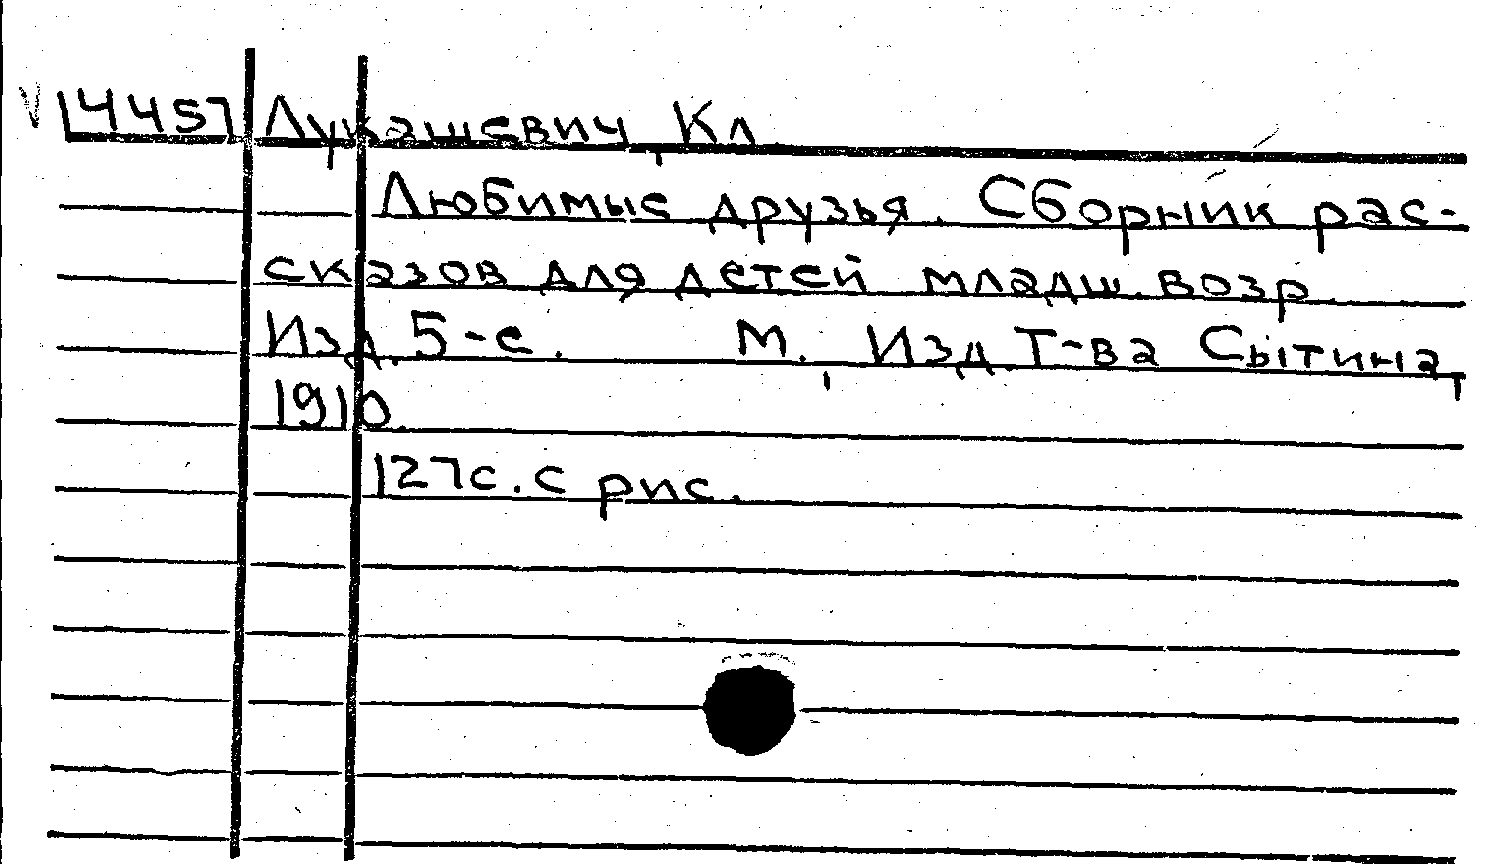 V 14457 Лукашевич, Кл
Любимые друзья. Сборник рас-
сказов для детей младш. возр.
Изд. 5-е. М., Изд. Т-ва Сытина,
1910.
127с. с рис.